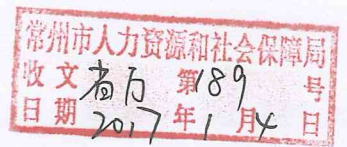 常州市人力资源和社会保障局
收文省百第189号
日期2017年1月4日